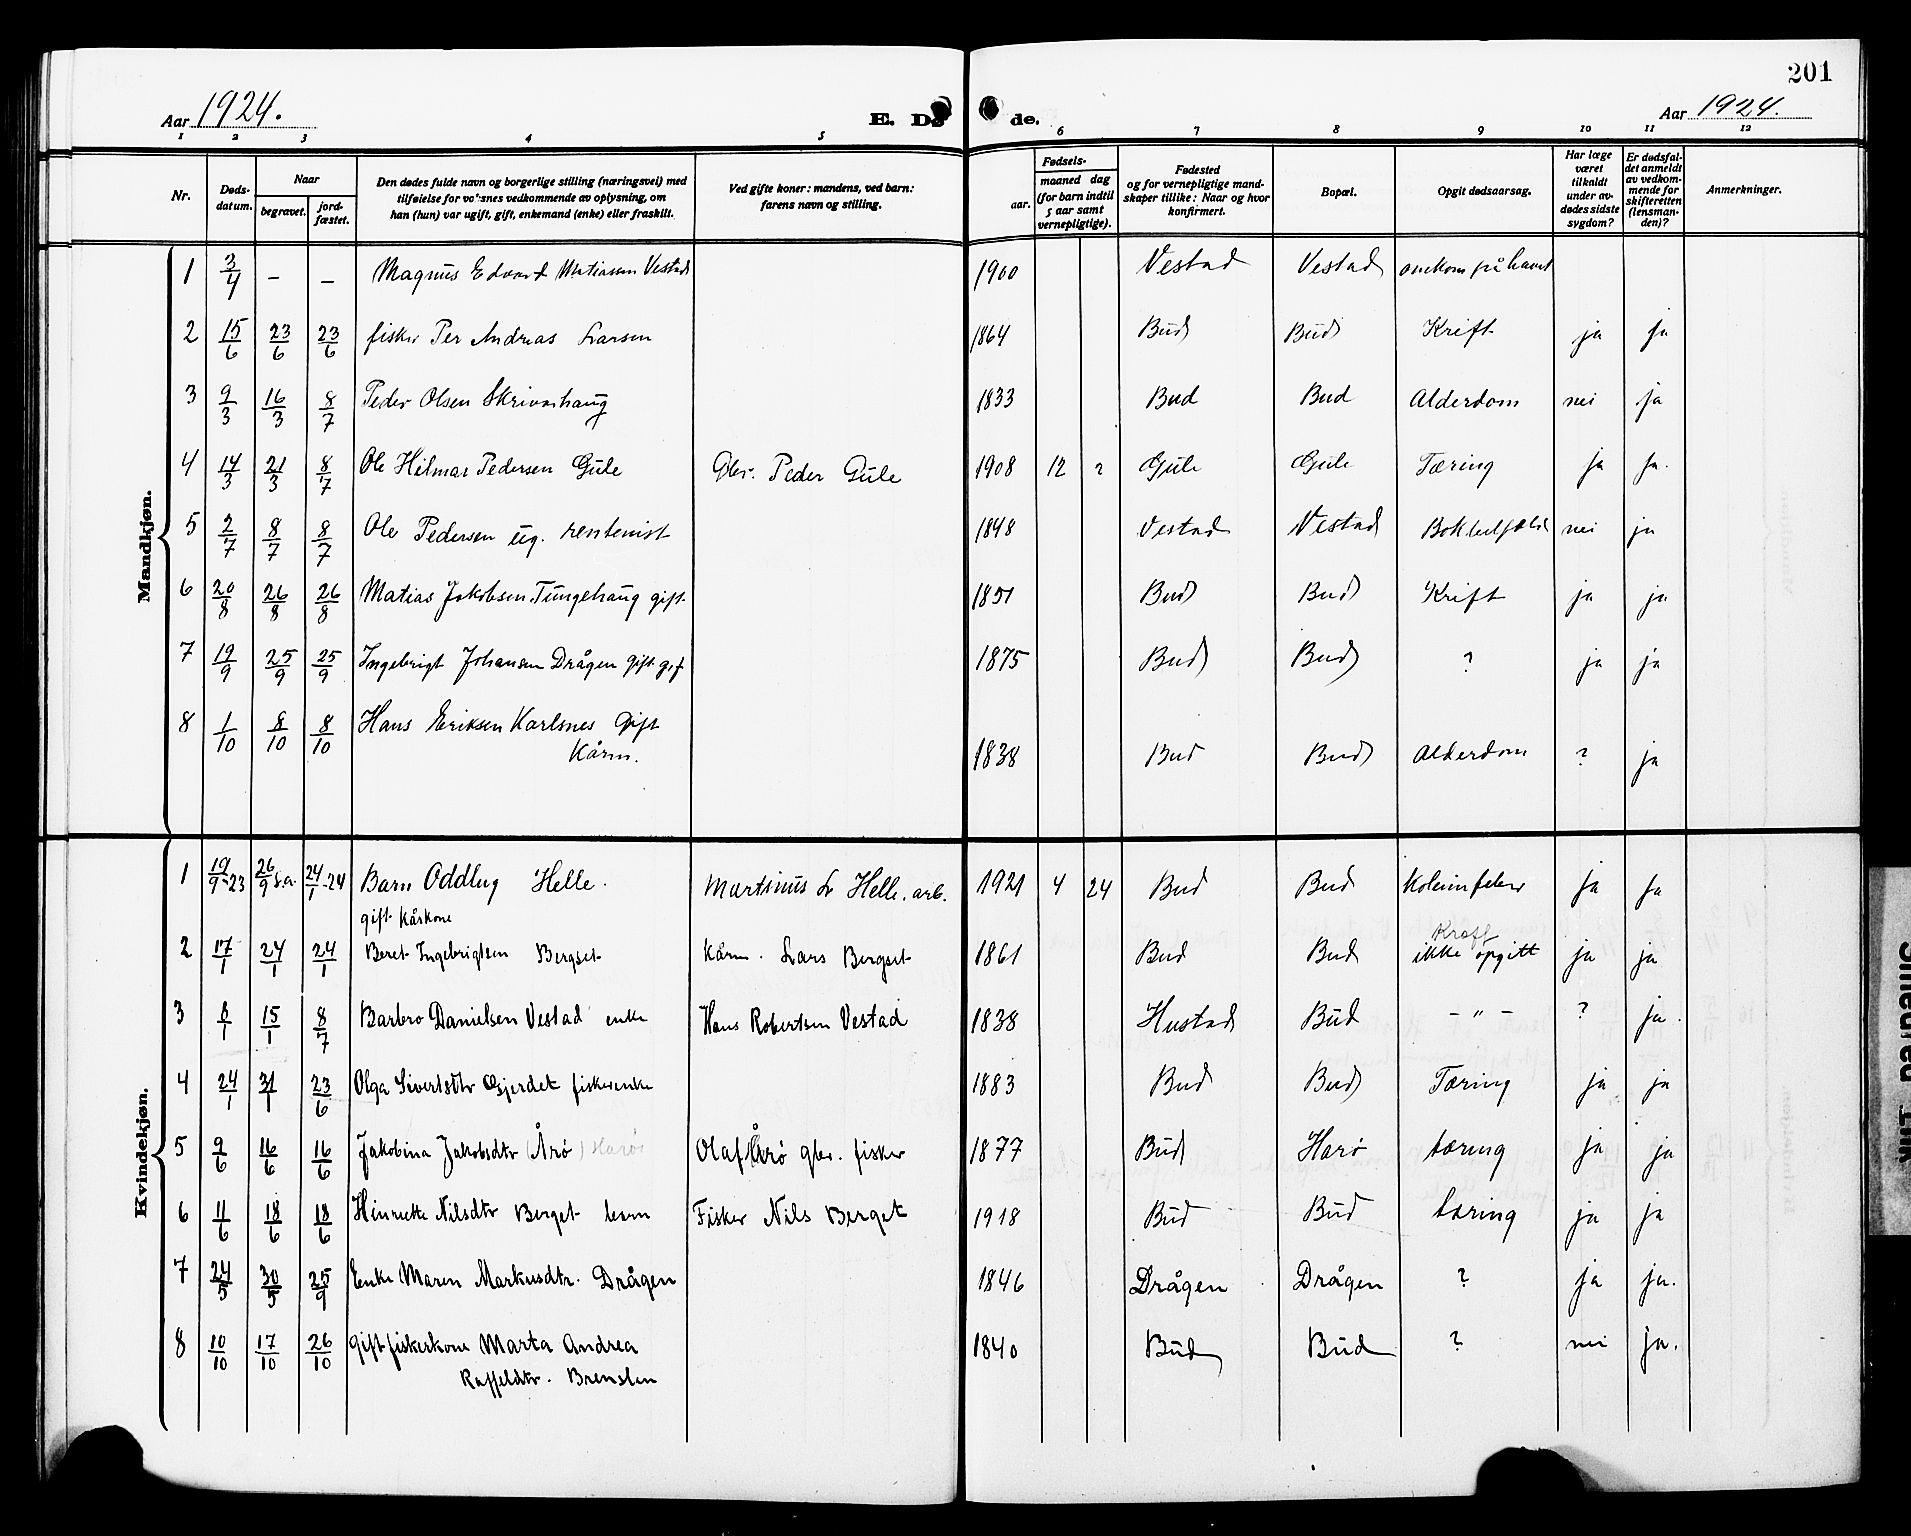 201
Aar 1924. E. Dø de. Aar 1924.
1 2 3 4 5 6 7 8 9 10 11 12
Nr. Døds-datum. Naar begravet. jord-fæstet. Den dødes fulde navn og borgerlige stilling (næringsvei) med tilføielse for voksnes vedkommende av oplysning, om han (hun) var ugift, gift, enkemand (enke) eller fraskilt. Ved gifte koner: mandens, ved barn: farens navn og stilling. Fødsels- aar. maaned dag (for barn indtil 5 aar samt vernepligtige). Fødested og for vernepligtige mand-skaper tillike: Naar og hvor konfirmert. Bopæl. Opgit dødsaarsag. Har læge været tilkaldt under av-dødes sidste sygdom? Er dødsfal-det anmeldt av vedkom-mende for skifteretten (lensman-den)? Anmerkninger.
Mandkjøn.
1 3/4 – – Magnus Edvard Matiassen Vestad 1900 Vestad Vestad omkom på havet
2 15/6 23/6 23/6 fisker Per Andreas Larsen 1864 Bud Bud Kreft ja ja
3 9/3 16/3 8/7 Peder Olsen Skrivarhaug 1833 Bud Bud Alderdom nei ja
4 14/3 21/3 8/7 Ole Hilmar Pedersen Gule Gbr. Peder Gule 1908 12 2 Gule Gule Tæring ja ja.
5 2/7 8/7 8/7 Ole Pedersen ug. rentenist 1848 Vestad Vestad nei ja
6 20/8 26/8 26/8 Matias Jakobsen Tungehaug gift 1851 Bud Bud Kreft ja ja
7 19/9 25/9 25/9 Ingebrigt Johansen Drågen gift 1875 Bud Bud ? ja ja
8 1/10 8/10 8/10 Hans Eriksen Karlsnes Gift
Kårm. 1838 Bud Bud Alderdom ? ja
Kvindekjøn.
1 19/9-23 26/9 s.a. 24/1-24 Barn Oddlug Helle. Martinus Helle. arb. 1921 4 24 Bud Bud ja ja
gift kårkone
2 17/1 24/1 24/1 Beret Ingebrigtsen Bergset Kårm. Lars Bergset 1861 Bud Bud ikke opgitt ja ja
3 8/1 15/1 8/7 Barbro Danielsen Vestad enke Hans Robertsen Vestad 1838 Hustad Bud – " – ? ja.
4 24/1 31/1 23/6 Olga Sivertsdtr Gjerdet fiskerenke 1883 Bud Bud Tæring ja ja
5 9/6 16/6 16/6 Jakobina Jakobsdtr (Årø) Harø Olaf Årø gbr. fisker 1877 Bud Harø tæring ja ja
6 11/6 18/6 18/6 Hinrette Nilsdtr Berget barn Fisker Nils Berget 1918 Bud Bud tæring ja ja
7 24/5 30/5 25/9 Enke Maren Markusdtr. Drågen 1846 Drågen Drågen ? ja ja.
8 10/10 17/10 26/10 gift fiskerkone Marta Andrea 1840 Bud Bud ? nei ja.